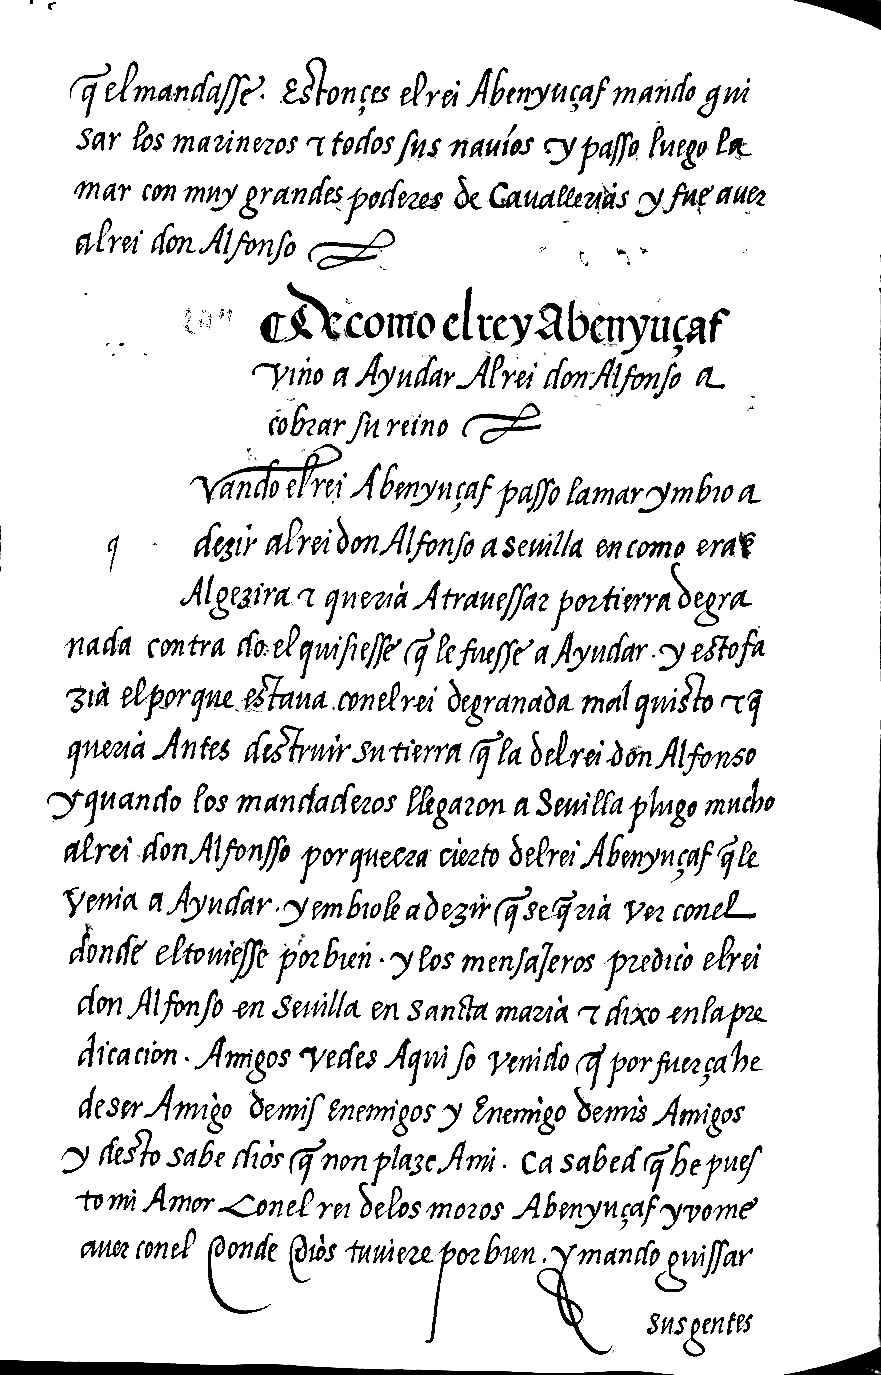 q̃ el mandasse. Estonçes el rei Abenyuçaf mando gui
sar los marineros τ todos sus nauíos y passo luego la
mar con muy grandes poderes de Cauallerias y fue auer
al rei don Alfonso
De como el rey Abenyuçaf
vino a Ayudar Al rei don Alfonso a
cobrar su reino
Vando el rei Abenyuçaf passo la mar ymbio a
dezir al rei don Alfonso a seuilla en como era e
Algezira τ queria Atrauessar por tierra de gra
nada contra do el quisiesse q̃ le fuesse a Ayudar. y esto fa
zia el porque estaua con el rei de granada mal quisto τ q̃
queria Antes destruir su tierra q̃ la del rei don Alfonso
y quando los mandaderos llegaron a Seuilla plugo mucho
al rei don Alfonsso porque era cierto del rei Abenyuçaf q̃ le
venia a Ayudar. y embiole a dezir q̃ se q̃ria ver con el
donde el touiesse por bien. y los mensajeros predico el rei
don Alfonso en Seuilla en sancta maria τ dixo en la pre
dicacion. Amigos vedes Aqui so venido q̃ por fuerça he
de ser Amigo de mis Enemigos y Enemigo de mis Amigos
y desto sabe dios q̃ non plaze Ami. Ca sabed q̃ he pues
to mi Amor Con el rei de los moros Abenyuçaf y vome
auer con el donde Dios tuuiere por bien. y mando guissar
sus gentes